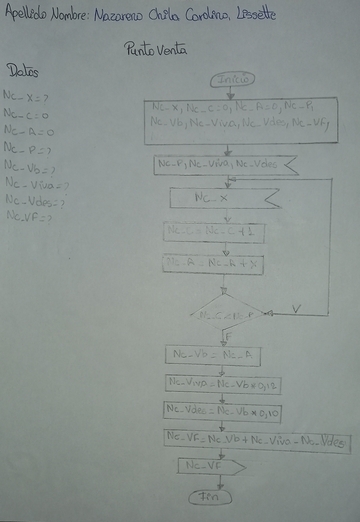 Apellido Nombre: Nazareno Chila Carolina, Lissette
Punto Venta
Datos
Nc_X=?
Nc_C=0
Nc_A=0
Nc_P=?
Nc_Vb=?
Nc_Viva=?
Nc_Vdes=?
Nc_VF=?
Inicio
Nc_X, Nc_C=0, Nc_A=0, Nc_P,
Nc_Vb, Nc_Viva, Nc_Vdes, Nc_VF,
Nc_P, Nc_Viva, Nc_Vdes
Nc_X
Nc_C = Nc_C + 1
Nc_A = Nc_A + X
V
F
Nc_Vb = Nc_A
Nc_Viva = Nc_Vb * 0,12
Nc_Vdes = Nc_Vb * 0,10
Nc_VF = Nc_Vb + Nc_Viva - Nc_Vdes
Nc_VF
Fin